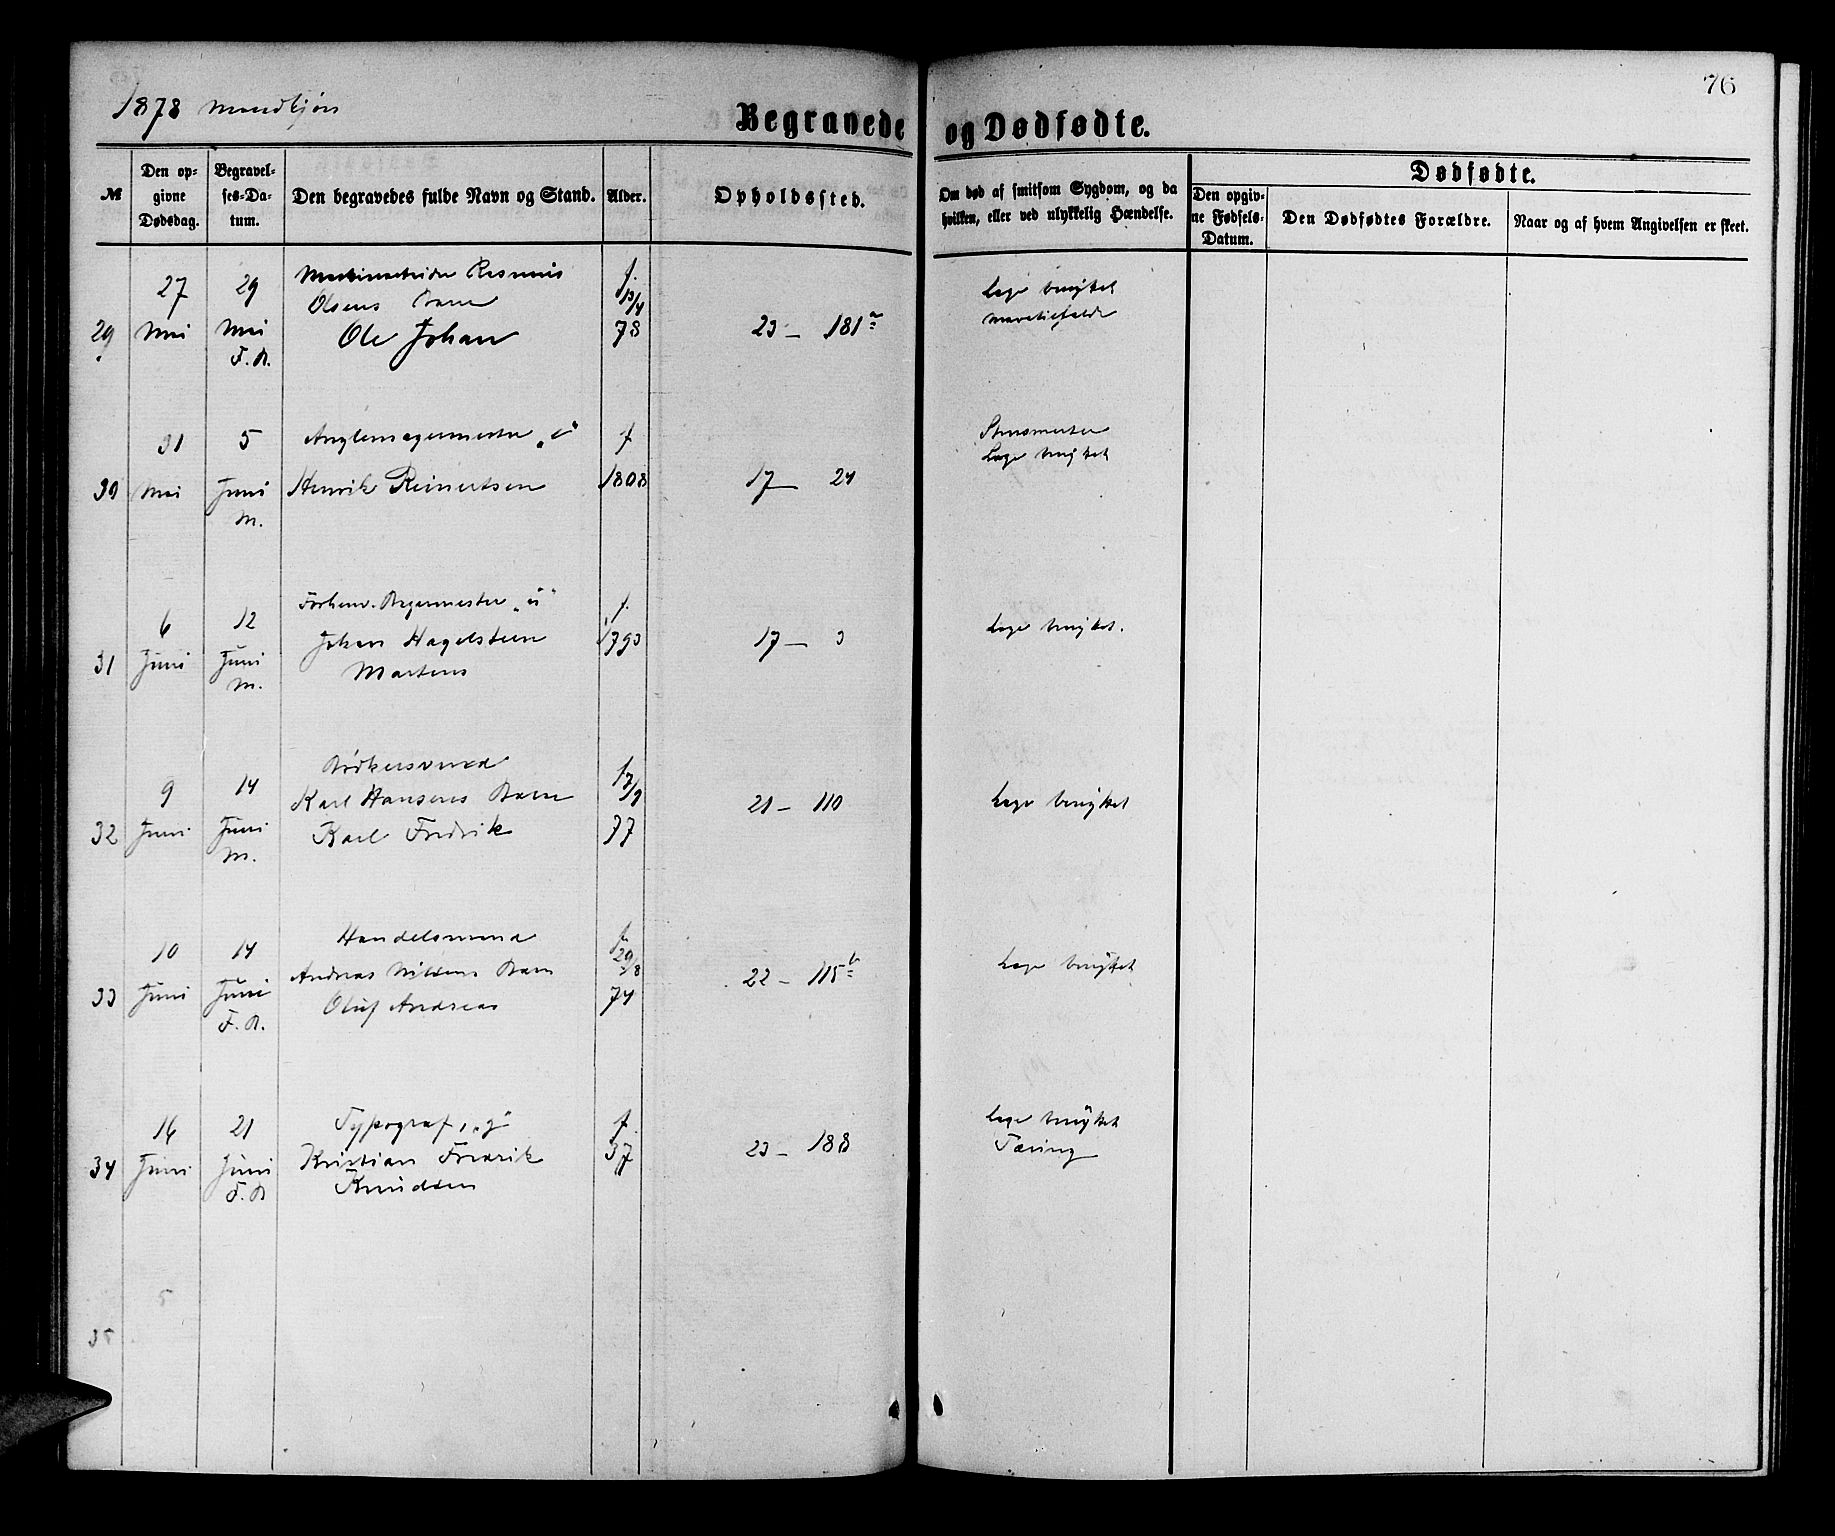 76
1878 Mandkjøn
Begravede og Dødfødte.
№
Den op-
givne
Dødsdag.
Begravel-
ses-Da-
tum.
Den begravedes fulde Navn og Stand.
Alder.
Opholdssted.
Om død af smitsom Sygdom, og da
hvilken, eller ved ulykkelig Hændelse.
Dødfødte.
Den opgiv-
ne Fødsels-
Datum.
Den Dødfødtes Forældre.
Naar og af hvem Angivelsen er skeet.
29
27
Mai
29
Mai
Rasmus
Olsens Barn
Ole Johan
f.
13/4
78
23 - 181 a
Læge benyttet
30
31
Mai
5
Juni
M.
Henrik Reinertsen
f
1808
17 - 24
Læge benyttet
31
6
Juni
12
Juni
M.
Forhenv. Bagermester
Johan Hagelsteen
Martens
f.
1793
17 - 3
Læge benyttet.
32
9
Juni
14
Juni
M.
Bødkersvend
Karl Hansens Barn
Karl Fredrik
77
21 - 110
Læge benyttet
33
10
Juni
14
Juni
Handelsmand
Andreas Nilsens Barn
Oluf Andreas
f.
29/8
74
22 - 115 b
Læge benyttet
34
16
Juni
21
Juni
Typograf, „g“
Kristian Fredrik
Knudsen
f.
37
23 - 188
Læge benyttet
Tæring
35